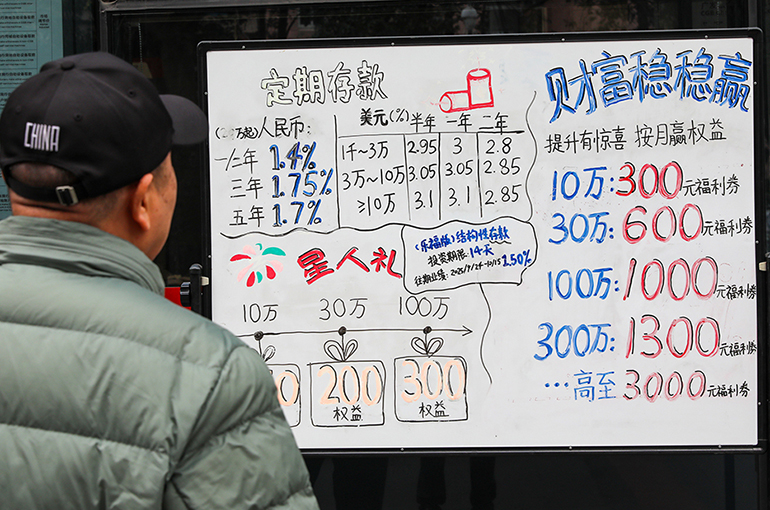 CHINA
定期存款
人民币:
一/二年 1.4%
三年 1.75%
五年 1.7%
美元(%) 半年 一年 二年
1千~3万 2.95 3 2.8
3万~10万 3.05 3.05 2.85
≥10万 3.1 3.1 2.85
星人礼
(乐福版)结构性存款
投资期限:14天
1.50%
10万 30万 100万
200 300
权益 权益
财富稳稳赢
提升有惊喜 按月赢权益
10万:300元福利券
30万:600元福利券
100万:1000元福利券
300万:1300元福利券
…高至3000元福利券